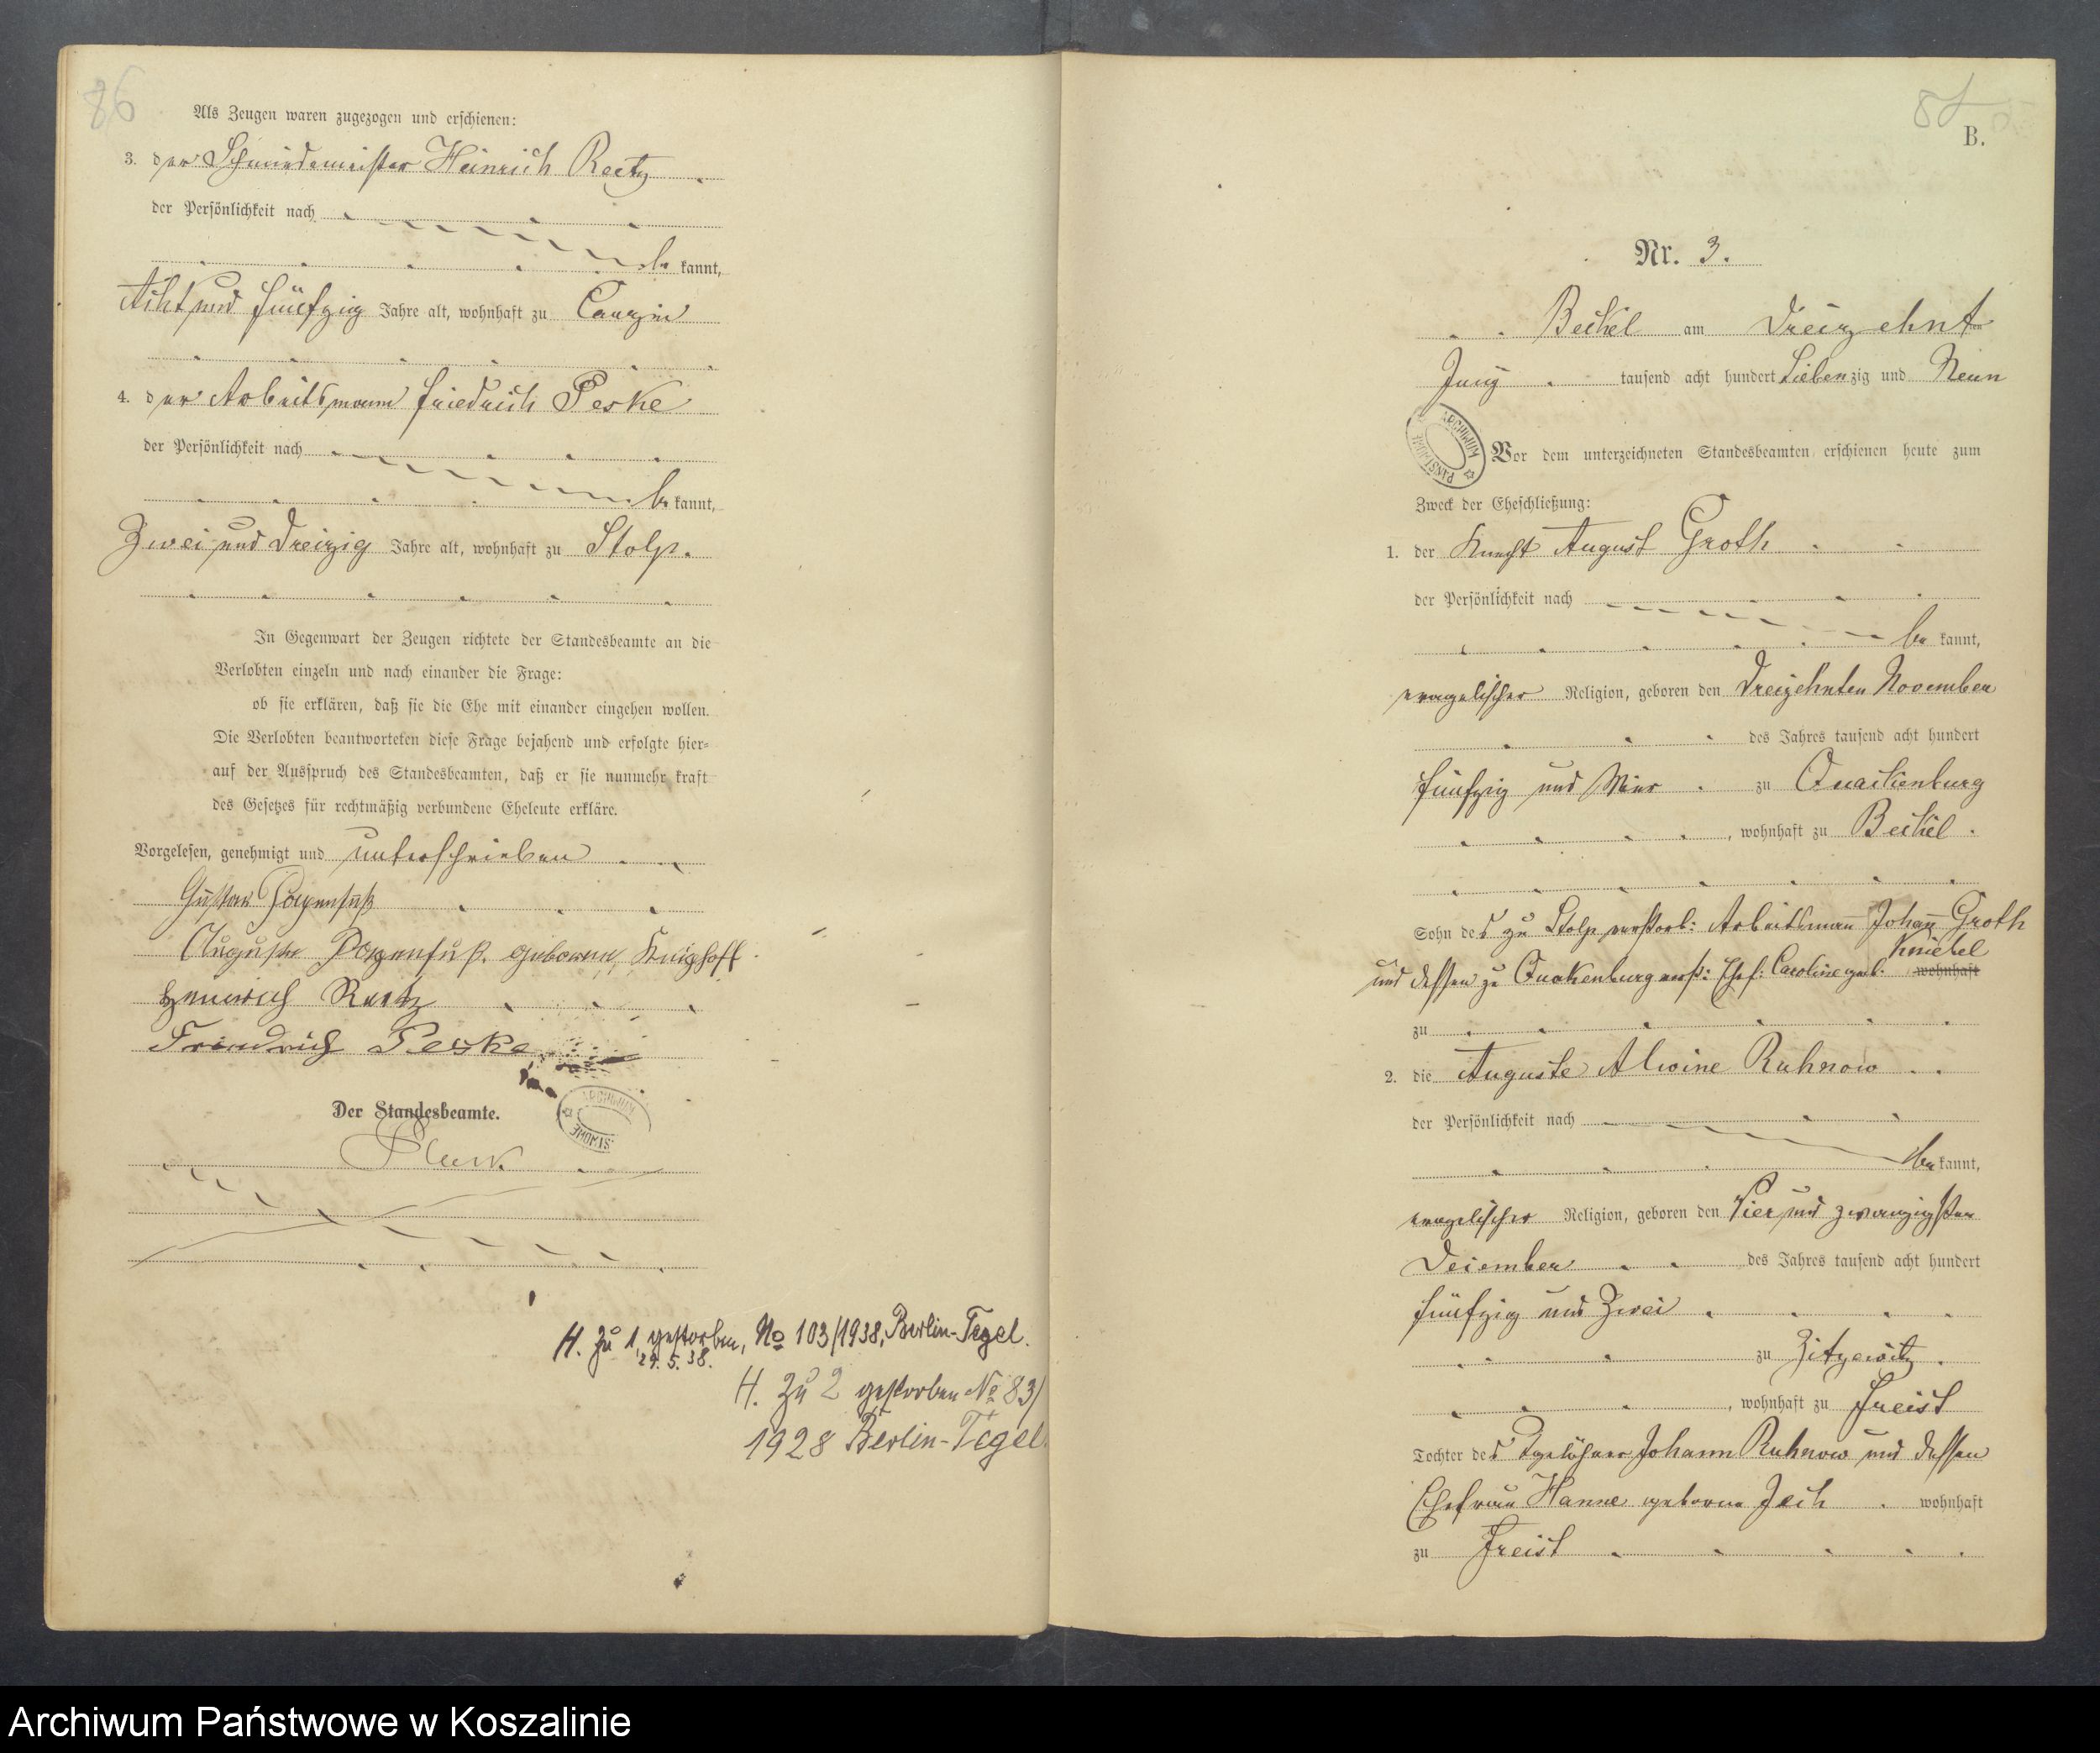 86
Als Zeugen waren zugezogen und erschienen:
3. der Schmiedemeister Heinrich Reetz
der Persönlichkeit nach
be kannt,
Acht und fünfzig Jahre alt, wohnhaft zu
4. der Arbeitsmann Friedrich Peske
der Persönlichkeit nach
be kannt,
Zwei und dreizig Jahre alt, wohnhaft zu Stolp.
In Gegenwart der Zeugen richtete der Standesbeamte an die
Verlobten einzeln und nach einander die Frage:
ob sie erklären, daß sie die Ehe mit einander eingehen wollen.
Die Verlobten beantworteten diese Frage bejahend und erfolgte hier=
auf der Ausspruch des Standesbeamten, daß er sie nunmehr kraft
des Gesetzes für rechtmäßig verbundene Eheleute erkläre.
Vorgelesen, genehmigt und unterschrieben
Gustav
Auguste geborene
Heinrich Reetz
Friedrich Peske
Der Standesbeamte.
H. Zu 1, gestorben, No 103/1938, Berlin-Tegel.
29. 5. 38.
H. Zu 2 gestorben No 83/
1928 Berlin-Tegel.
B.
Nr. 3.
Beckel am Dreizehnten
Juny tausend acht hundert Siebenzig und Neun
Vor dem unterzeichneten Standesbeamten erschienen heute zum
Zweck der Eheschließung:
1. der Knecht August Groth
der Persönlichkeit nach
be kannt,
evangelischer Religion, geboren den Dreizehnten November
des Jahres tausend acht hundert
fünfzig und Vier zu Quackenburg
, wohnhaft zu Beckel.
Sohn des zu Stolp verstorb: Arbeitsmann Johann Groth
und dessen zu Quakenburg verst: Ehef: Caroline geb. Kniebel wohnhaft
zu
2. die Auguste Alwine Ruhnow
der Persönlichkeit nach
be kannt,
evangelischer Religion, geboren den Vier und zwanzigsten
December des Jahres tausend acht hundert
fünfzig und Zwei
zu Zitzewitz.
, wohnhaft zu Freist
Tochter des Tagelöhner Johann Ruhnow und dessen
Ehefrau Hanne geborne Jech wohnhaft
zu Freist
Archiwum Państwowe w Koszalinie